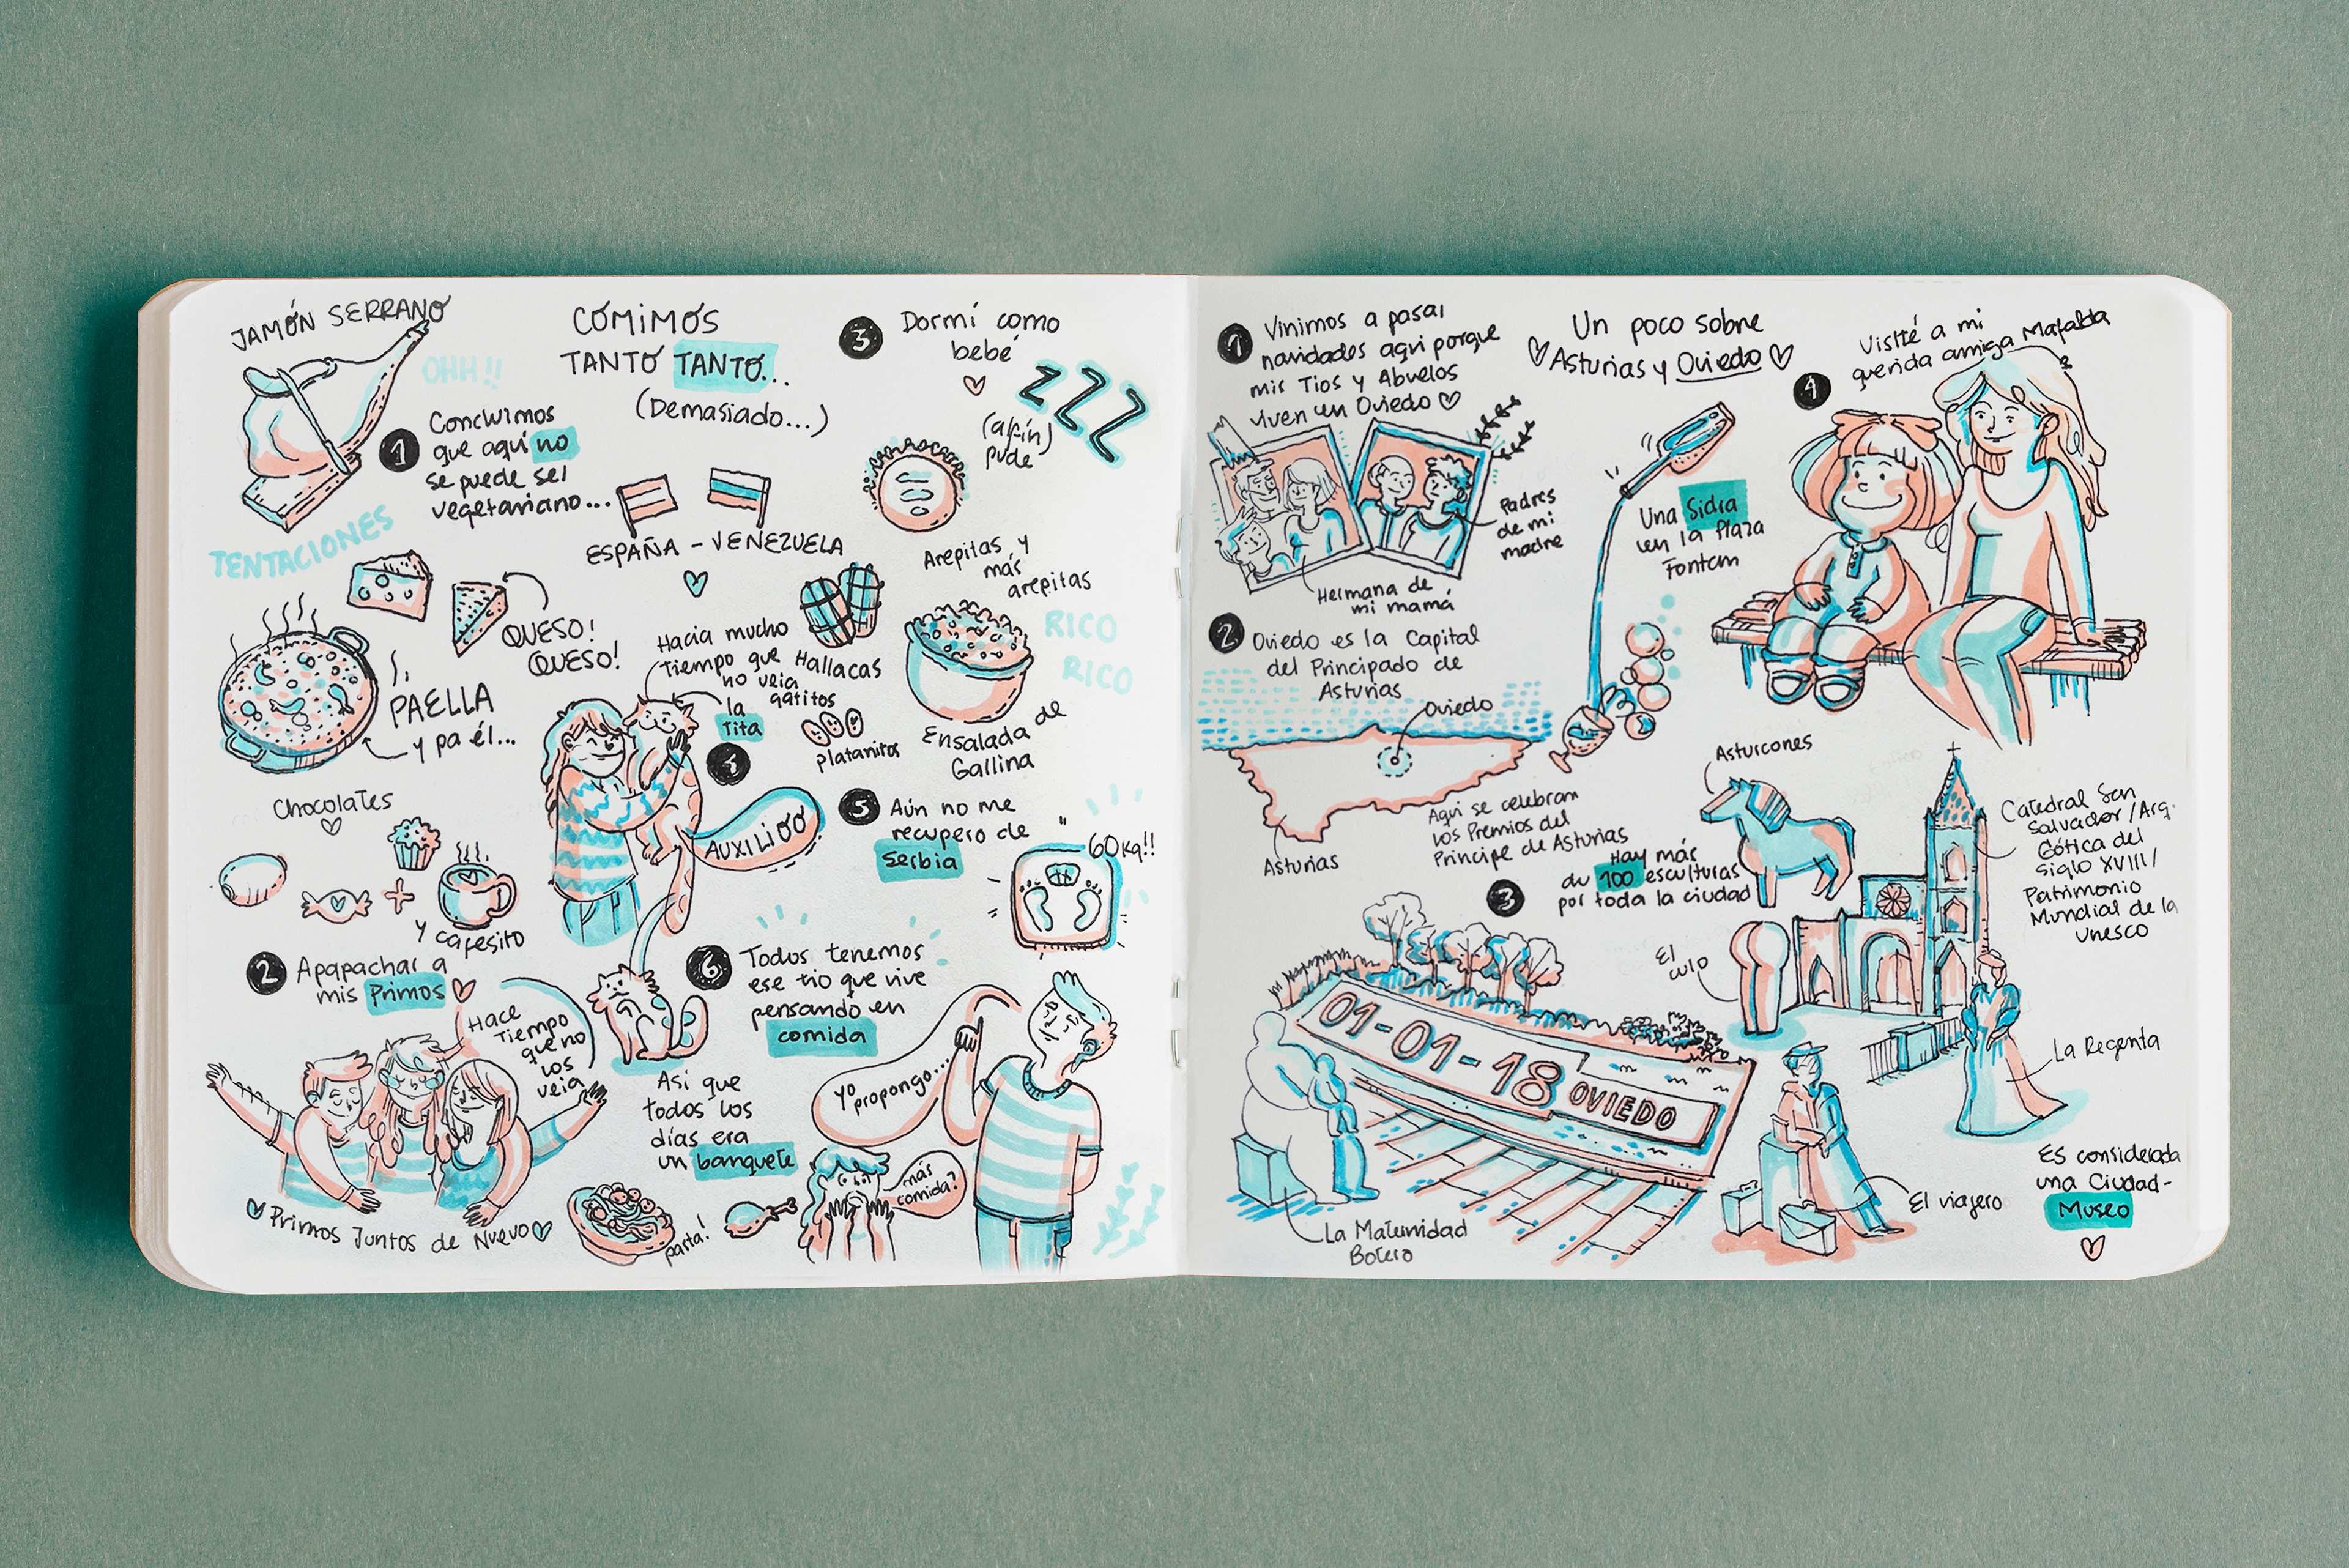 JAMÓN SERRANO
OHH!!
1
Concluimos
que aquí no
se puede ser
vegetariano...
TENTACIONES
QUESO!
QUESO!
PAELLA
y pa él...
Chocolates
y cafesito
2
Apapachar a
mis Primos
Hace
Tiempo
que no
los
veia
Primos Juntos de Nuevo
COMIMOS
TANTO TANTO...
(Demasiado...)
ESPAÑA - VENEZUELA
3
Dormí como
bebé
ZZZ
(al fín)
pude
Arepitas y
más
arepitas
Hallacas
RICO
RICO
platanitos
Ensalada de
Gallina
4
Hacia mucho
tiempo que
no veia
gatitos
la
Tita
AUXILIOO
5
Aún no me
recupero de
Serbia
60Kg!!
6
Todos tenemos
ese tio que vive
pensando en
comida
Asi que
todos los
días era
un banquete
yo
propongo...
más
comida?
pasta!
Un poco sobre
Asturias y Oviedo
1
Vinimos a pasar
navidades aqui porque
mis Tios y Abuelos
viven en Oviedo
Padres
de mi
madre
Hermana de
mi mamá
2
Oviedo es la Capital
del Principado de
Asturias
Oviedo
Asturias
Aqui se celebran
los Premios del
Principe de Asturias
Una Sidra
en la Plaza
Fontan
3
Hay más
de 100 esculturas
por toda la ciudad
01-01-18 OVIEDO
La Maternidad
Botero
4
Visité a mi
querida amiga Mafalda
Asturcones
Catedral San
Salvador/Arq.
Gótica del
Siglo XVIII/
Patrimonio
Mundial de la
Unesco
El
culo
La Regenta
El viajero
Es considerada
una Ciudad-
Museo